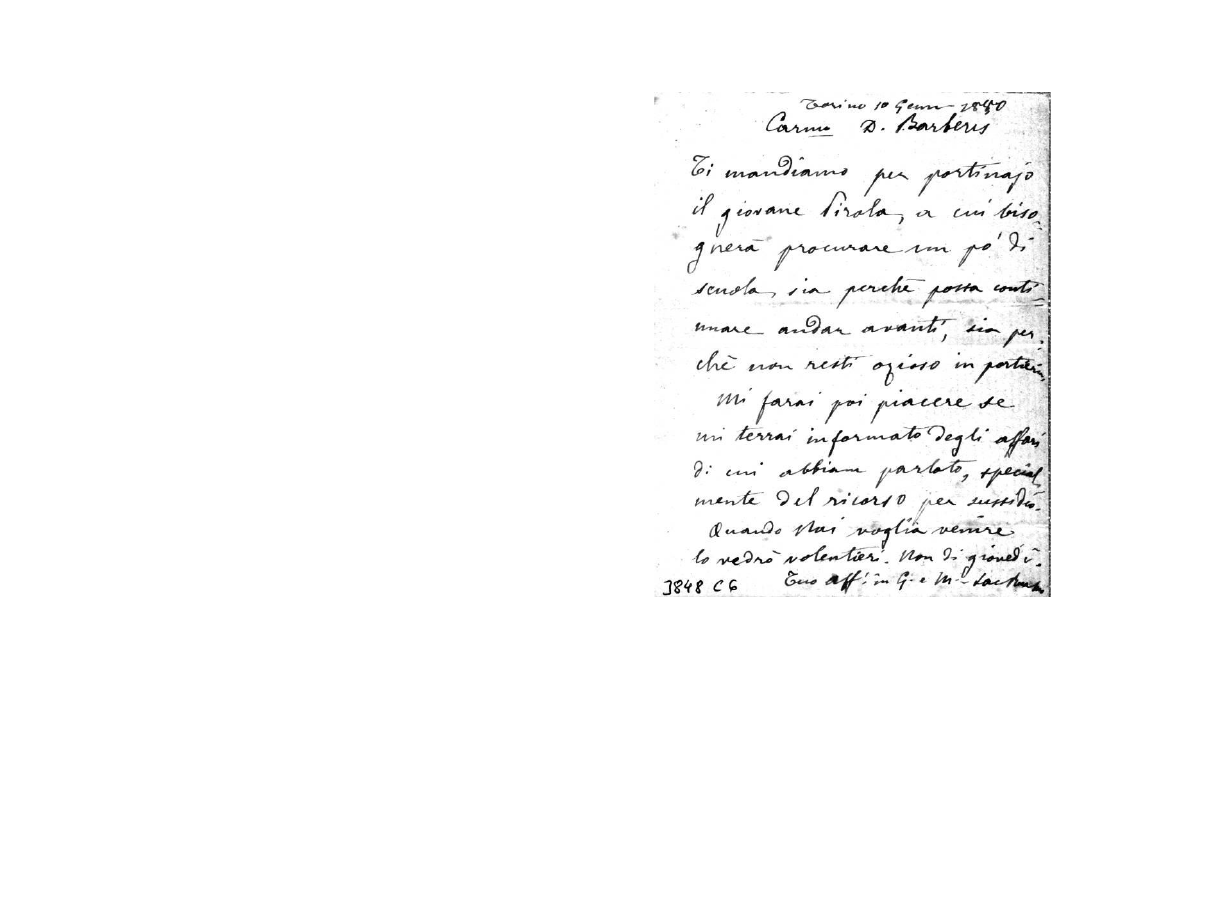 Torino 10 Genn 1880
Carmo D. Barberis
Ti mandiamo per portinajo
il giovane Pirola, a cui biso-
gnerà procurare un po' di
scuola, sia perchè possa conti=
nuare andar avanti, sia per-
chè non resti ozioso in portieria
Mi farai poi piacere se
mi terrai informato degli affari
di cui abbiam parlato, special
mente del ricorso per sussidio.
Quando voglia venire
lo vedrò volentieri. Non di giovedì.
Tuo aff. in G. e M.
3848 C6